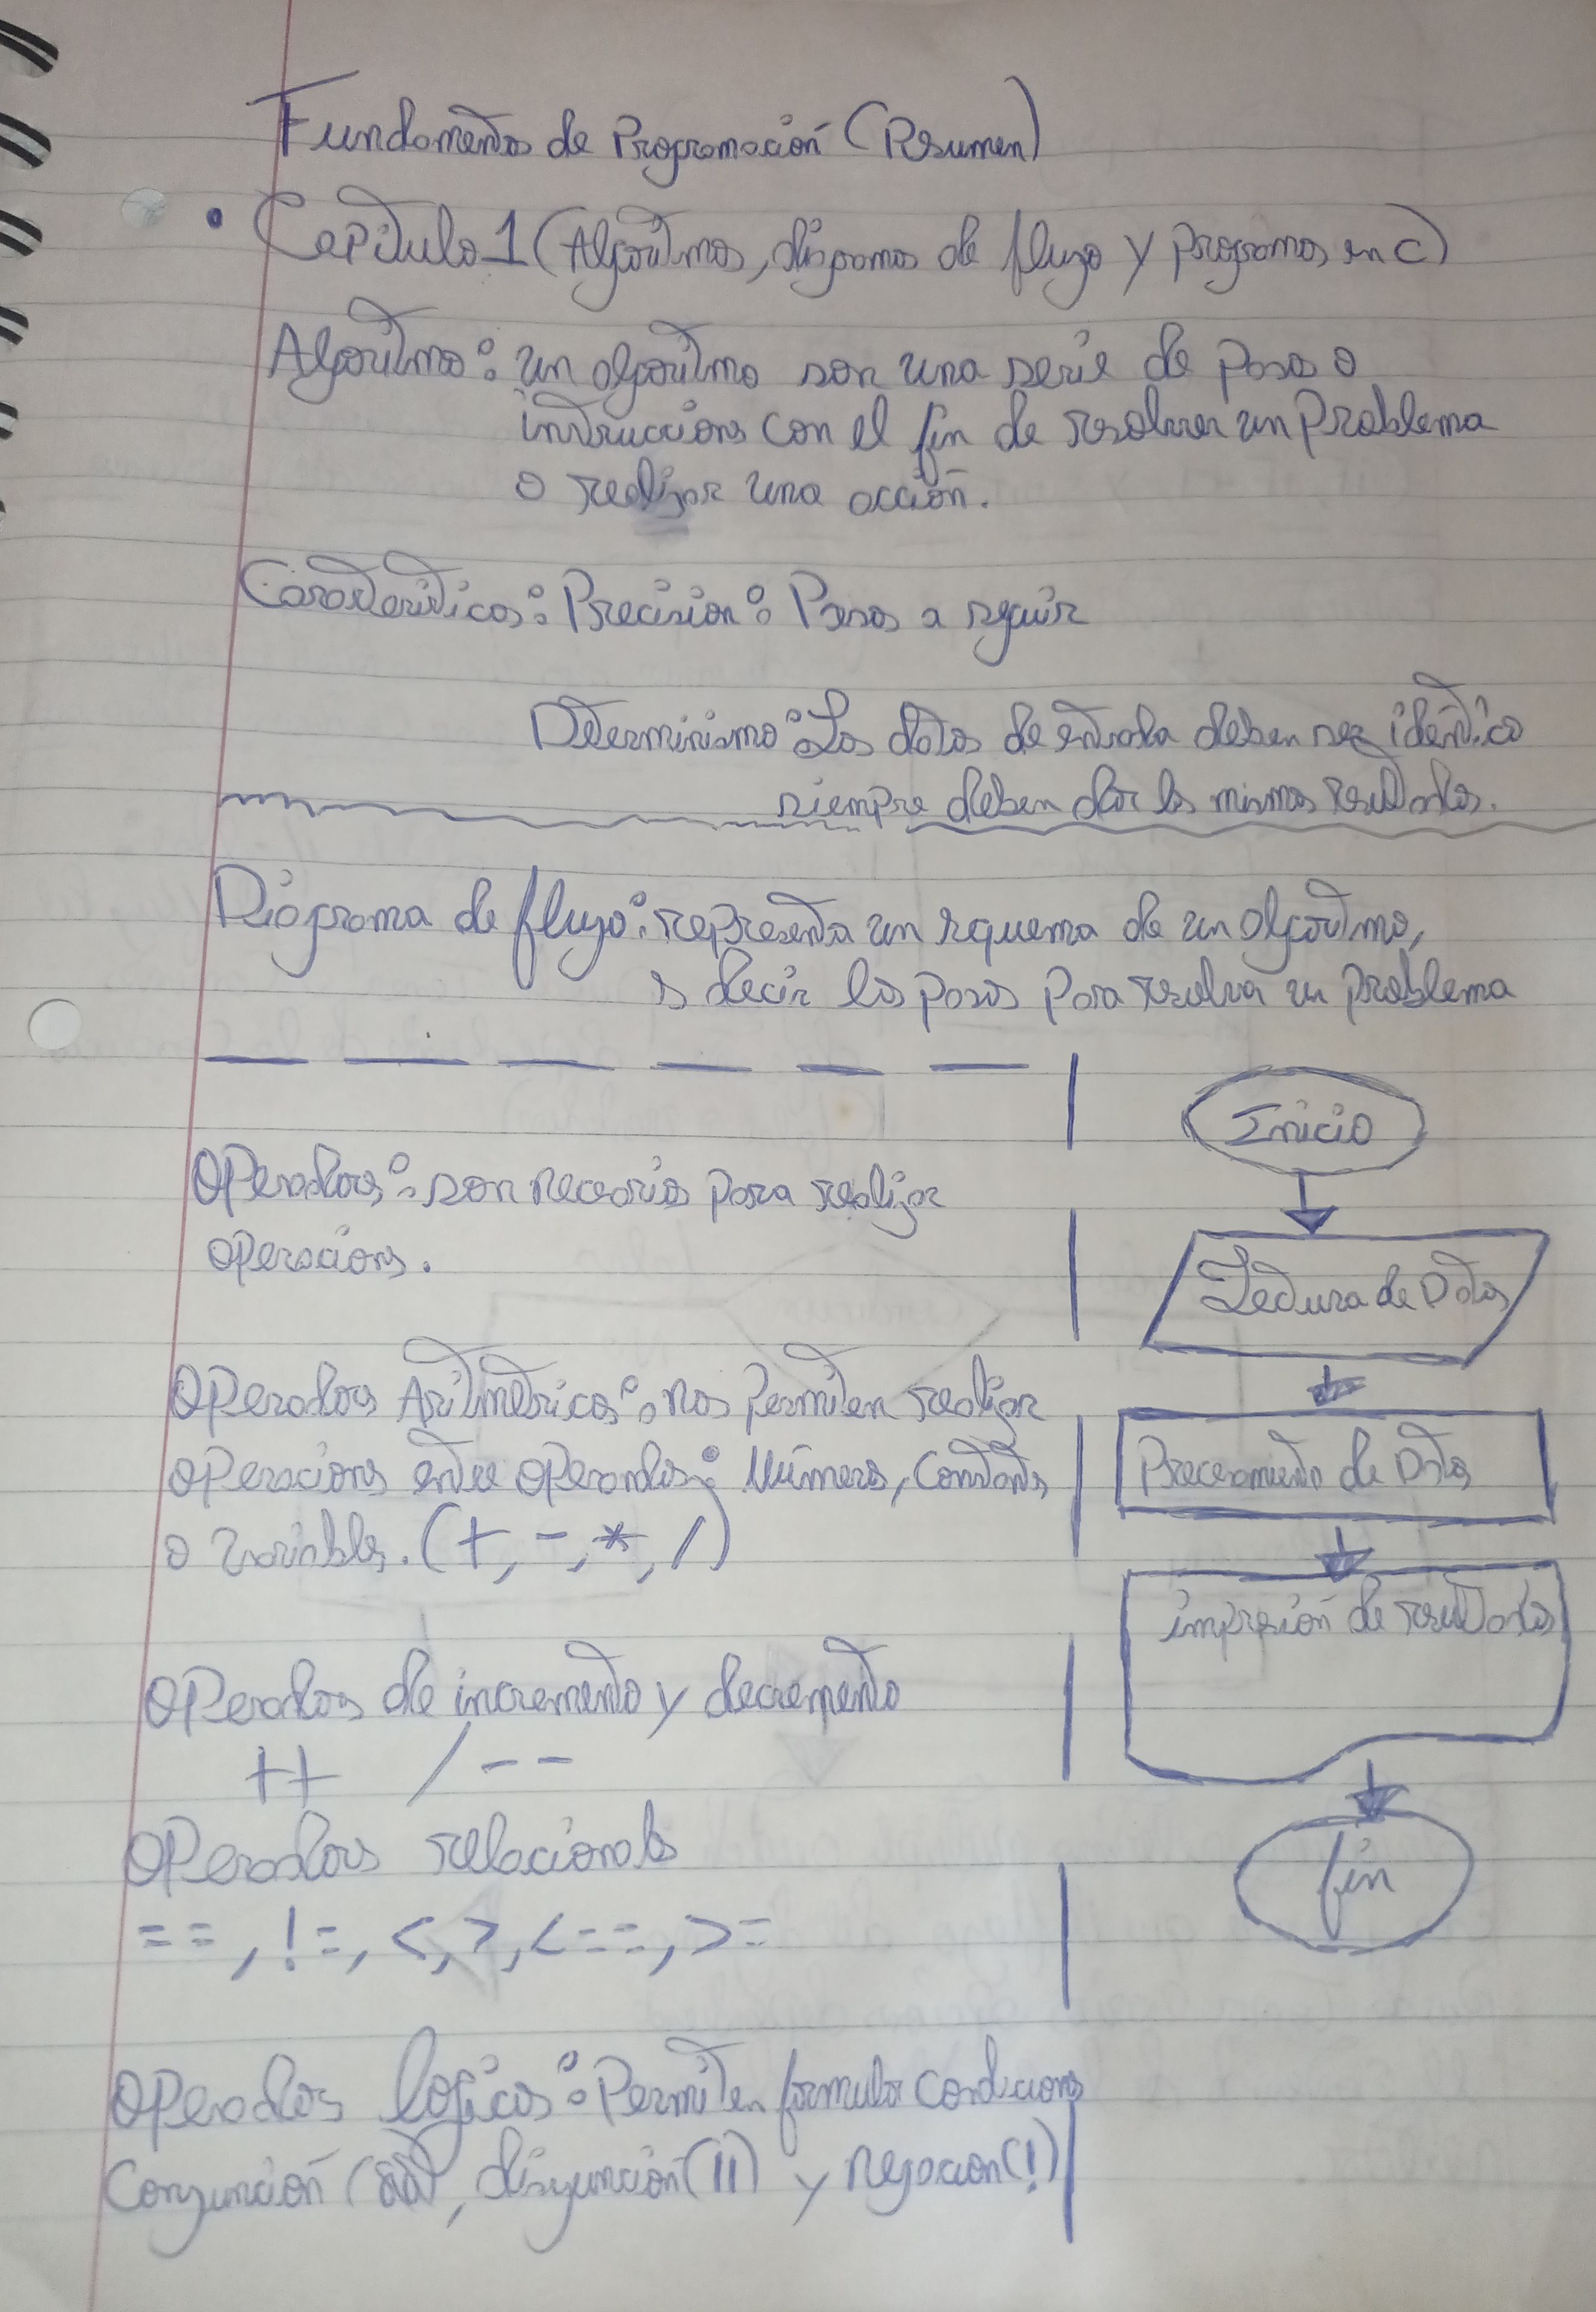 Fundamentos de Programación (Resumen)
• Capitulo 1 (Algoritmos, diagramas de flujo y programas en C)
Algoritmo: un algoritmo son una serie de pasos o
intrucciones con el fin de resolver un Problema
o realizar una acción.
Caracteristicas: Precision: Pasos a seguir
Determinismo: Los datos de entrada deben ser identico
siempre deben dar los mismos resultados.
Diagrama de flujo: representa un esquema de un algoritmo,
es decir los pasos para resolver un problema
Operadores: son necesarios para realizar
operaciones.
Operadores Aritmetricos: nos permiten realizar
operaciones entre operandos: Números, Constantes
o variables. (+, -, *, /)
Operadores de incremento y decremento
++ / --
Operadores relacionales
==, !=, <, >, <==, >=
Operadores logicos: Permiten formular condiciones
Conjunción (&&), disyunción (||) y negacion (!)
Inicio
Lectura de Datos
Procesamiento de Datos
impresión de resultados
fin